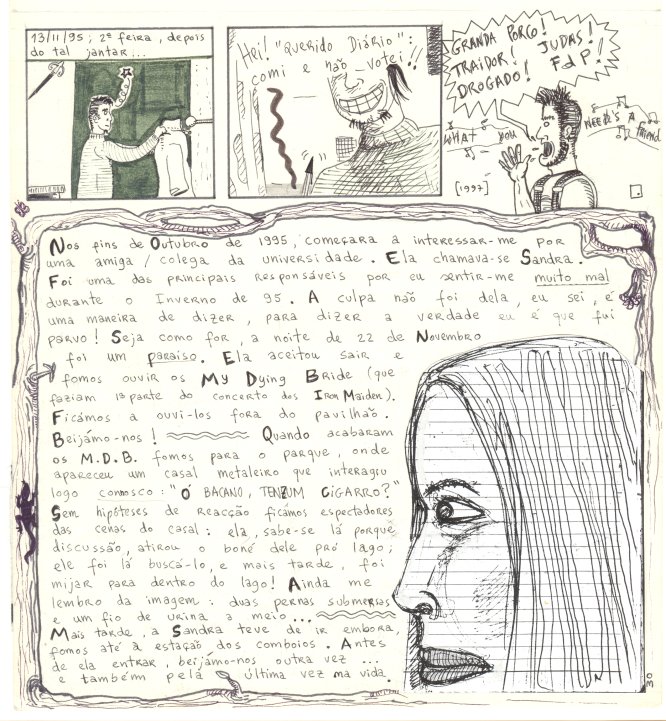 13/11/95 ; 2ª feira, depois
do tal jantar...
Hei! "Querido Diário":
comi e não votei!!
GRANDA PORCO!
TRAIDOR! JUDAS!
DROGADO! F.d.P.!
WHAT YOU
NEEDS A FRIEND
[1997]
Nos fins de Outubro de 1995, começara a interessar-me por
uma amiga / colega da universidade. Ela chamava-se Sandra.
Foi uma das principais responsáveis por eu sentir-me muito mal
durante o Inverno de 95. A culpa não foi dela, eu sei, é
uma maneira de dizer, para dizer a verdade eu é que fui
parvo! Seja como for, a noite de 22 de Novembro
foi um paraíso. Ela aceitou sair e
fomos ouvir os My Dying Bride (que
faziam 1ª parte do concerto dos Iron Maiden).
Ficámos a ouvi-los fora do pavilhão.
Beijámo-nos! Quando acabaram
os M.D.B. fomos para o parque, onde
apareceu um casal metaleiro que interagiu
logo connosco: "Ó BACANO, TENZUM CIGARRO?"
Sem hipóteses de reacção ficámos espectadores
das cenas do casal: ela, sabe-se lá porquê
discussão, atirou o boné dele pró lago;
ele foi lá buscá-lo, e mais tarde, foi
mijar para dentro do lago! Ainda me
lembro da imagem: duas pernas submersas
e um fio de urina a meio...
Mais tarde, a Sandra teve de ir embora,
fomos até à estação dos comboios. Antes
de ela entrar, beijámo-nos outra vez ...
e também pela última vez na vida.
30